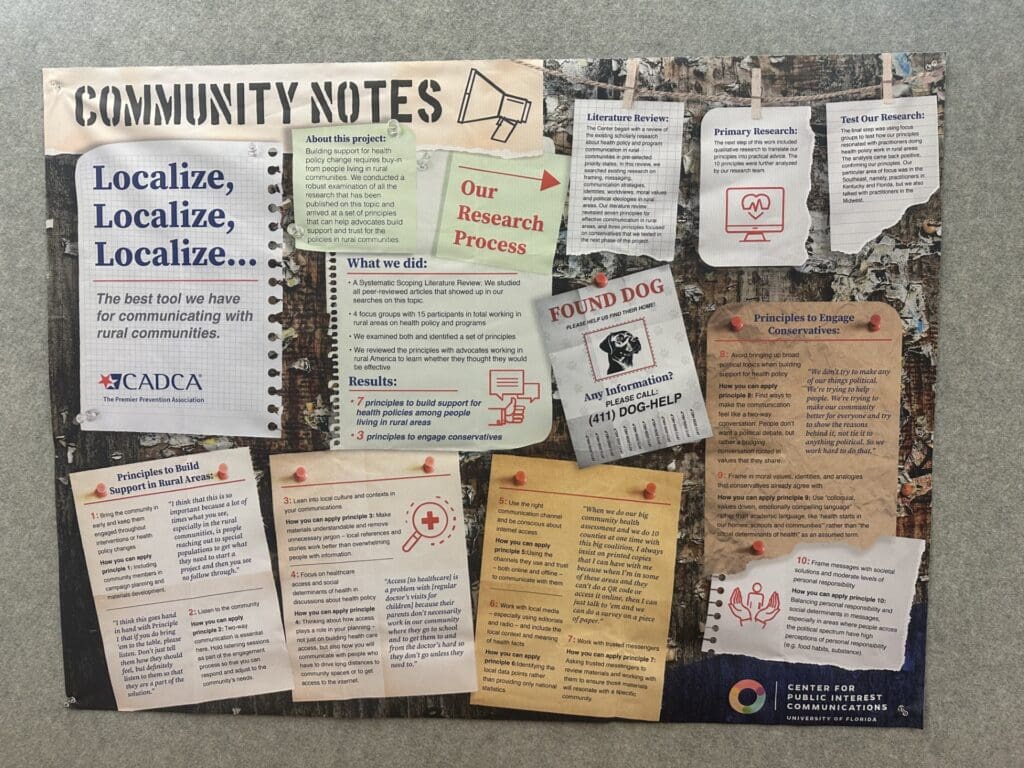 COMMUNITY NOTES
Localize,
Localize,
Localize...
The best tool we have
for communicating with
rural communities.
CADCA
The Premier Prevention Association
About this project:
Building support for health
policy change requires buy-in
from people living in rural
communities. We conducted a
robust examination of all the
research that has been
published on this topic and
arrived at a set of principles
that can help advocates build
support and trust for the
policies in rural communities.
Our
Research
Process
Literature Review:
The Center began with a review of
the existing scholarly research
about health policy and program
communication in rural
communities in pre-selected
priority states. In this review, we
searched existing research on
framing, messaging,
communication strategies,
identities, worldviews, moral values
and political ideologies in rural
areas. Our literature review
revealed seven principles for
effective communication in rural
areas, and three principles focused
on conservatives that we tested in
the next phase of the project.
Primary Research:
The next step of this work included
qualitative research to translate our
principles into practical advice. The
10 principles were further analyzed
by our research team.
Test Our Research:
The final step was using focus
groups to test how our principles
resonated with practitioners doing
health policy work in rural areas.
The analysis came back positive,
confirming our principles. Our
particular area of focus was in the
Southeast, namely, practitioners in
Kentucky and Florida, but we also
talked with practitioners in the
Midwest.
What we did:
• A Systematic Scoping Literature Review: We studied
all peer-reviewed articles that showed up in our
searches on this topic.
• 4 focus groups with 15 participants in total working in
rural areas on health policy and programs
• We examined both and identified a set of principles
• We reviewed the principles with advocates working in
rural America to learn whether they thought they would
be effective
Results:
• 7 principles to build support for
health policies among people
living in rural areas
• 3 principles to engage conservatives
FOUND DOG
PLEASE HELP US FIND THEIR HOME!
Any Information?
PLEASE CALL:
(411) DOG-HELP
Principles to Engage
Conservatives:
8: Avoid bringing up broad
political topics when building
support for health policy
How you can apply
principle 8: Find ways to
make the communication
feel like a two-way
conversation. People don't
want a political debate, but
rather a bridging
conversation rooted in
values that they share.
"We don't try to make any
of our things political.
We're trying to help
people. We're trying to
make our community
better for everyone and try
to show the reasons
behind it, not tie it to
anything political. So we
work hard to do that."
9: Frame in moral values, identities, and analogies
that conservatives already agree with
How you can apply principle 9: Use "colloquial,
values driven, emotionally compelling language"
rather than academic language, like "health starts in
our homes, schools and communities" rather than "the
social determinants of health" as an assumed term.
10: Frame messages with societal
solutions and moderate levels of
personal responsibility
How you can apply principle 10:
Balancing personal responsibility and
social determinants in messages,
especially in areas where people across
the political spectrum have high
perceptions of personal responsibility
(e.g. food habits, substance).
Principles to Build
Support in Rural Areas:
1: Bring the community in
early and keep them
engaged throughout
interventions or health
policy changes
How you can apply
principle 1: Including
community members in
campaign planning and
materials development.
"I think that this is so
important because a lot of
times what you see,
especially in the rural
communities, is people
reaching out to special
populations to get what
they need to start a
project and then you see
no follow through."
"I think this goes hand
in hand with Principle
1 that if you do bring
them to the table, please
listen. Don't just tell
them how they should
feel, but definitely
listen to them so that
they are a part of the
solution."
2: Listen to the community
How you can apply
principle 2: Two-way
communication is essential
here. Hold listening sessions
as part of the engagement
process so that you can
respond and adjust to the
community's needs.
3: Lean into local culture and contexts in
your communications
How you can apply principle 3: Make
materials understandable and remove
unnecessary jargon – local references and
stories work better than overwhelming
people with information.
4: Focus on healthcare
access and social
determinants of health in
discussions about health policy
How you can apply principle
4: Thinking about how access
plays a role in your planning –
not just on building health care
access, but also how you will
communicate with people who
have to drive long distances to
community spaces or to get
access to the internet.
"Access [to healthcare] is
a problem with [regular
doctor's visits for
children] because their
parents don't necessarily
work in our community
where they go to school
and to get them to and
from the doctor's is hard so
they don't go unless they
need to."
5: Use the right
communication channel
and be conscious about
internet access
How you can apply
principle 5:Using the
channels they use and trust
– both online and offline –
to communicate with them
"When we do our big
community health
assessment and we do 10
counties at one time with
this big coalition, I always
insist on printed copies
that I can have with me
because when I'm in some
of these areas and they
can't do a QR code or
access it online, then I can
just talk to 'em and we
can do a survey on a piece
of paper."
6: Work with local media
– especially using editorials
and radio – and include the
local context and meaning
of health facts
How you can apply
principle 6:Identifying the
local data points rather
than providing only national
statistics.
7: Work with trusted messengers
How you can apply principle 7:
Asking trusted messengers to
review materials and working with
them to ensure those materials
will resonate with a specific
community.
CENTER FOR
PUBLIC INTEREST
COMMUNICATIONS
UNIVERSITY OF FLORIDA